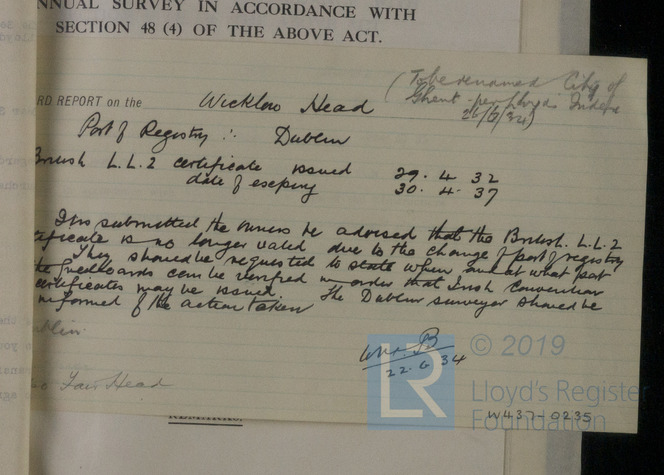 NNUAL SURVEY IN ACCORDANCE WITH
SECTION 48 (4) OF THE ABOVE ACT.
(To be renamed City of
Ghent per Lloyds Index
RD REPORT on the Wicklow Head
26/6/34)
Port of Registry :- Dublin
British L.L.2 certificate issued 29. 4. 32
date of expiry 30. 4. 37
It is submitted the owners be advised that the British L.L.2
tificate is no longer valid due to the change of port of registry
They should be requested to state when and at what port
the freeboards can be verified in order that Irish Convention
certificates may be issued. The Dublin surveyor should be
informed of the action taken
ublin
Fair Head
22. 6. 34
REMARKS.
LR
© 2019
Lloyd's Register
Foundation
W437-0235